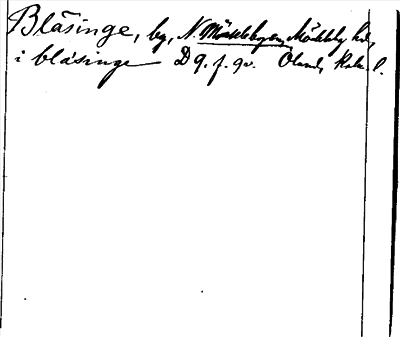 Bläsinge, by, N. Möckleby sn, Möckleby hd,
i blásinge D 9. f. 9v. Öland, Kalm. l.